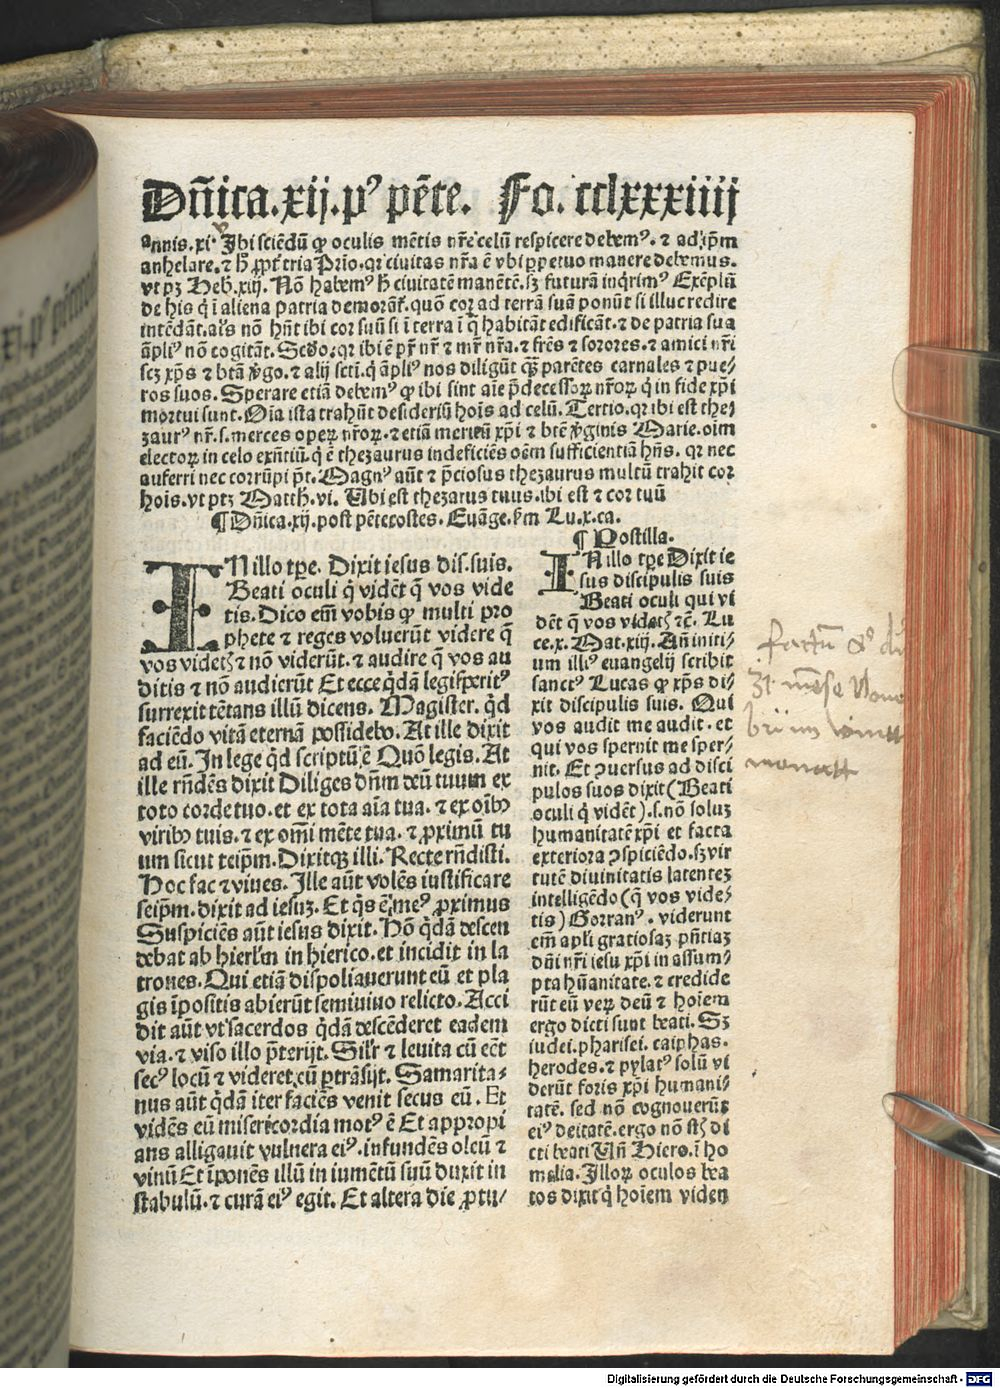 Dñica.xij.pꝰ pẽte. Fo. cclxxxiiij
annis.xi. Ibi sciẽdũ ꝙ oculis mẽtis nr̃e celũ respicere debemꝰ. ⁊ ad ip̃m
anhelare. ⁊ h̃ ꝓpt̃ tria Prio. qꝛ ciuitas nr̃a ẽ vbi ꝑpetuo manere debemus.
vt pꝫ Heb̃.xiij. Nõ habemꝰ h̃ ciuitatẽ manẽtẽ. sꝫ futurã inq̃rimꝰ Exẽplũ
de his q̇ ĩ aliena patria demorãt̃. quõ cor ad terrã suã ponũt si illuc redire
intẽdãt. al̃s nõ hñt ibi cor suũ si ĩ terra ĩ q̃ habitãt edificãt. ⁊ de patria sua
ãpliꝰ nõ cogitãt. Scd̃o. qꝛ ibi ẽ pr̃ nr̃ ⁊ mr̃ nr̃a. ⁊ fr̃es ⁊ sorores. ⁊ amici nr̃i
scꝫ xp̃s ⁊ btã ṽgo. ⁊ alij scti. q̇ ãpliꝰ nos diligũt q̃ꝫ parẽtes carnales ⁊ pue⸗
ros suos. Sperare etiã debemꝰ ꝙ ibi sint aĩe p̃decessoꝝ nr̃oꝝ q̇ in fide xp̃i
mortui sunt. Oĩa ista trahũt desideriũ hoĩs ad celũ. Tertio. qꝛ ibi est the⸗
zaurꝰ nr̃. s. merces operꝝ nr̃oꝝ. ⁊ etiã meritũ xp̃i ⁊ btẽ ṽginis Marie. oĩm
electoꝝ in celo exñtiũ. q̇ ẽ thezaurus indeficiẽs oẽm sufficientiã hñs. qꝛ nec
auferri nec corrũpi p̃t. Magnꝰ aũt ⁊ p̃ciosus thezaurus multũ trahit cor
hoĩs. vt ptꝫ Matth̃.vi. Vbi est thezarus tuus. ibi est ⁊ cor tuũ
¶ Dñica.xij.post pẽtecostes. Euãge. ẜm Lu.x.ca.
IN illo tp̃e. Dixit iesus dis. suis.
Beati oculi q̇ vidẽt q̃ vos vide
tis. Dico em̃ vobis ꝙ multi pro
phete ⁊ reges voluerũt videre q̃
vos videtꝭ ⁊ nõ viderũt. ⁊ audire q̃ vos au
ditis ⁊ nõ audierũt Et ecce q̇dã legisꝑitꝰ
surrexit tẽtans illũ dicens. Magister. q̇d
faciẽdo vitã eternã possidebo. At ille dixit
ad eũ. In lege q̇d scriptũ ẽ Quõ legis. At
ille rñdẽs dixit Diliges dñm deũ tuum ex
toto corde tuo. et ex tota aĩa tua. ⁊ ex oĩbꝰ
viribꝰ tuis. ⁊ ex om̃i mẽte tua. ⁊ ꝓximũ tu
um sicut teip̃m. Dixitqꝫ illi. Recte rñdisti.
Hoc fac ⁊ viues. Ille aũt volẽs iustificare
seip̃m. dixit ad iesuꝫ. Et q̇s ẽ meꝰ ꝓximus
Suspiciẽs aũt iesus dixit. Hõ q̇dã descen
debat ab hierl̃m in hierico. et incidit in la
trones. Qui etiã dispoliauerunt eũ et pla
gis ĩpositis abierũt semiuiuo relicto. Acci
dit aũt vt sacerdos q̇dã descẽderet eadem
via. ⁊ viso illo p̃terijt. Sil̃r ⁊ leuita cũ eẽt
secꝰ locũ ⁊ videret cũ ꝑtrãsijt. Samarita⸗
nus aũt q̇dã iter faciẽs venit secus eũ. Et
vidẽs eũ misericordia motꝰ ẽ Et appropi
ans alligauit vulnera eiꝰ. infundẽs oleũ ⁊
vinũ Et ĩponẽs illũ in iumẽtũ suũ duxit in
stabulũ. ⁊ curã eiꝰ egit. Et altera die ꝓtu⸗
¶ Postilla.
IN illo tp̃e Dixit ie
sus discipulis suis
Beati oculi qui vi
dẽt q̃ vos videtꝭ ⁊c̃. Lu
ce.x. Mat.xiij. Añ initi⸗
um illiꝰ euangelij scribit
sanctꝰ Lucas ꝙ xp̃s di⸗
xit discipulis suis. Qui
vos audit me audit. et
qui vos spernit me sper⸗
nit. Et ꝯuersus ad disci
pulos suos dixit (Beati
oculi q̇ vidẽt). s. nõ soluꝫ
humanitatẽ xp̃i et facta
exteriora ꝯspiciẽdo. sꝫ vir
tutẽ diuinitatis latenteꝫ
intelligẽdo (q̃ vos vide⸗
tis) Gorranꝰ. viderunt
em̃ apl̃i gratiosaꝫ pñtiaꝫ
dñi nr̃i iesu xp̃i in assum⸗
pta hũanitate. ⁊ credide
rũt eũ veꝝ deũ ⁊ hoĩem
ergo dicti sunt beati. Sꝫ
iudei. pharisei. caiphas.
herodes. ⁊ pylatꝰ solũ vi
derũt foris xp̃i humani⸗
tatẽ. sed nõ cognouerũt
eiꝰ deitatẽ. ergo nõ st̃ di
cti beati Vñ Hiero. ĩ ho
melia. Illoꝝ oculos bea
tos dixit q̇ hoĩem viden
31 mẽse Noue